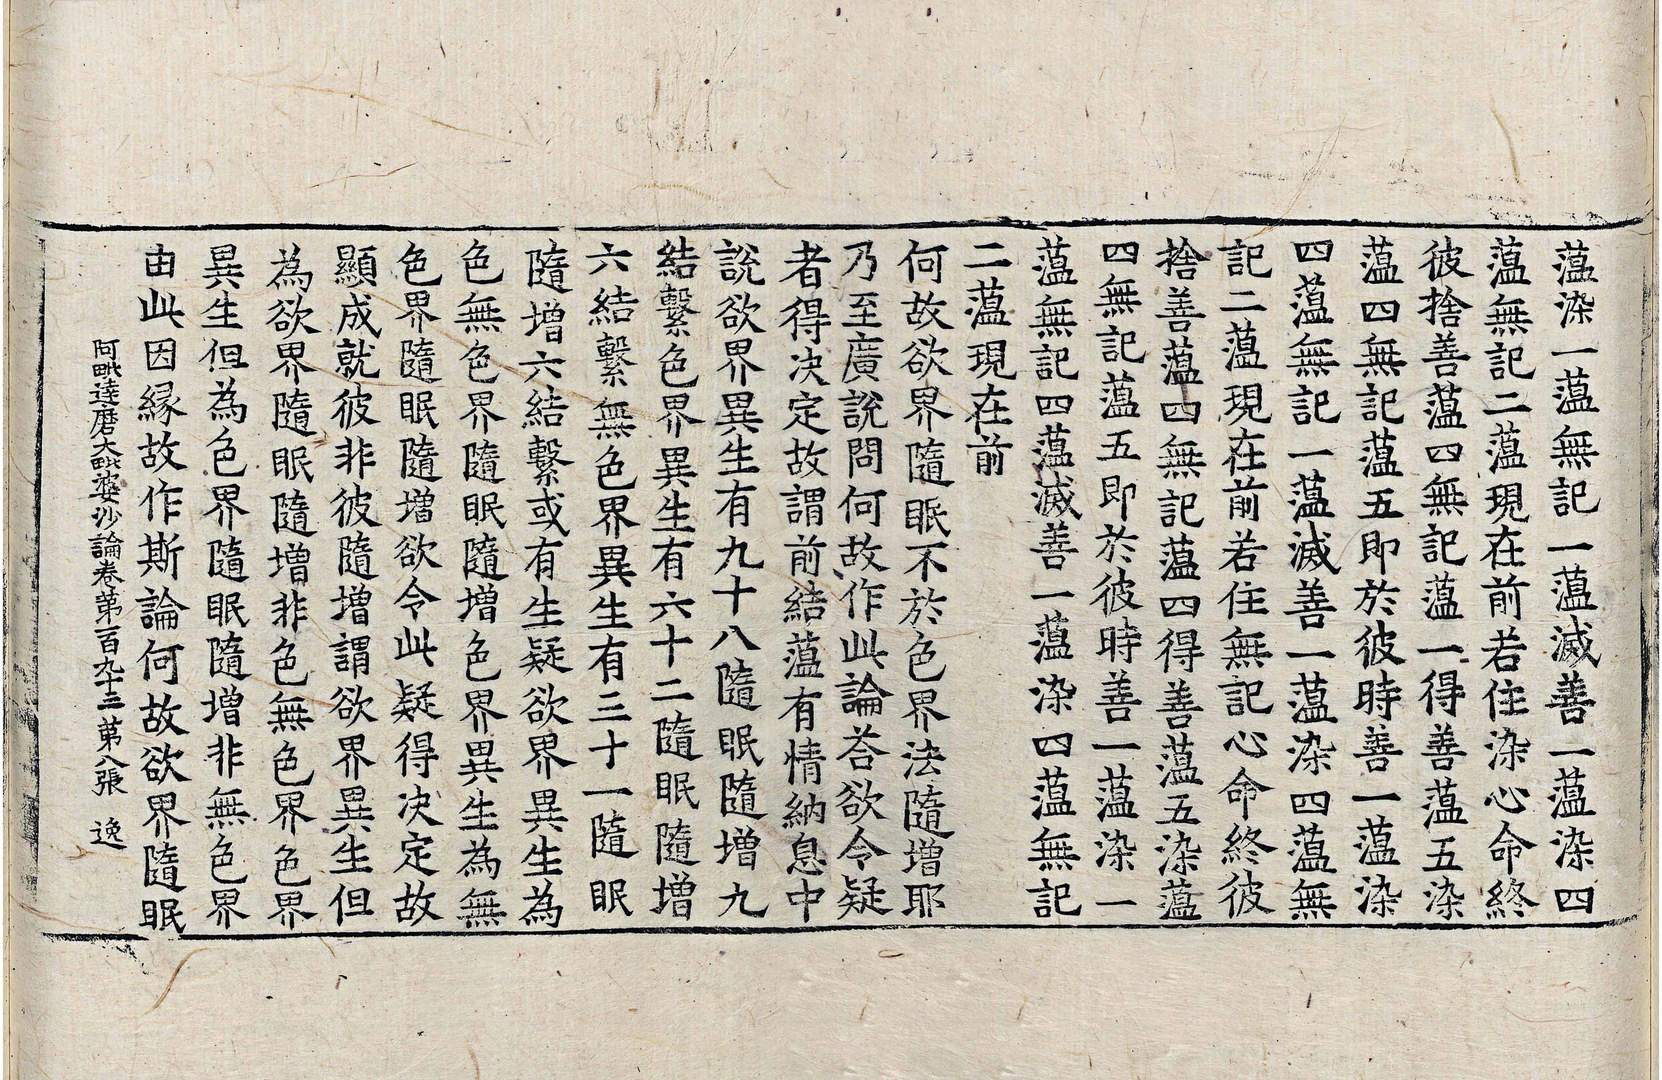 蕰染一蕰無記一蕰滅善一蕰染四
蕰無記二蕰現在前若住染心命終
彼捨善蕰四無記蕰一得善蕰五染
蕰四無記蕰五即於彼時善一蕰染
四蕰無記一蕰滅善一蕰染四蕰無
記二蕰現在前若住無記心命終彼
捨善蕰四無記蕰四得善蕰五染蕰
四無記蕰五即於彼時善一蕰染一
蕰無記四蕰滅善一蕰染四蕰無記
二蕰現在前
何故欲界隨眠不於色界法隨增耶
乃至廣說問何故作此論荅欲令疑
者得決定故謂前結蕰有情納息中
說欲界異生有九十八隨眠隨增九
結繫色界異生有六十二隨眠隨增
六結繫無色界異生有三十一隨眠
隨增六結繫或有生疑欲界異生為
色無色界隨眠隨增色界異生為無
色界隨眠隨增欲令此疑得決定故
顯成就彼非彼隨增謂欲界異生但
為欲界隨眠隨增非色無色界色界
異生但為色界隨眠隨增非無色界
由此因緣故作斯論何故欲界隨眠
阿毗達磨大毗婆沙論卷第一百九十三 第八張 逸